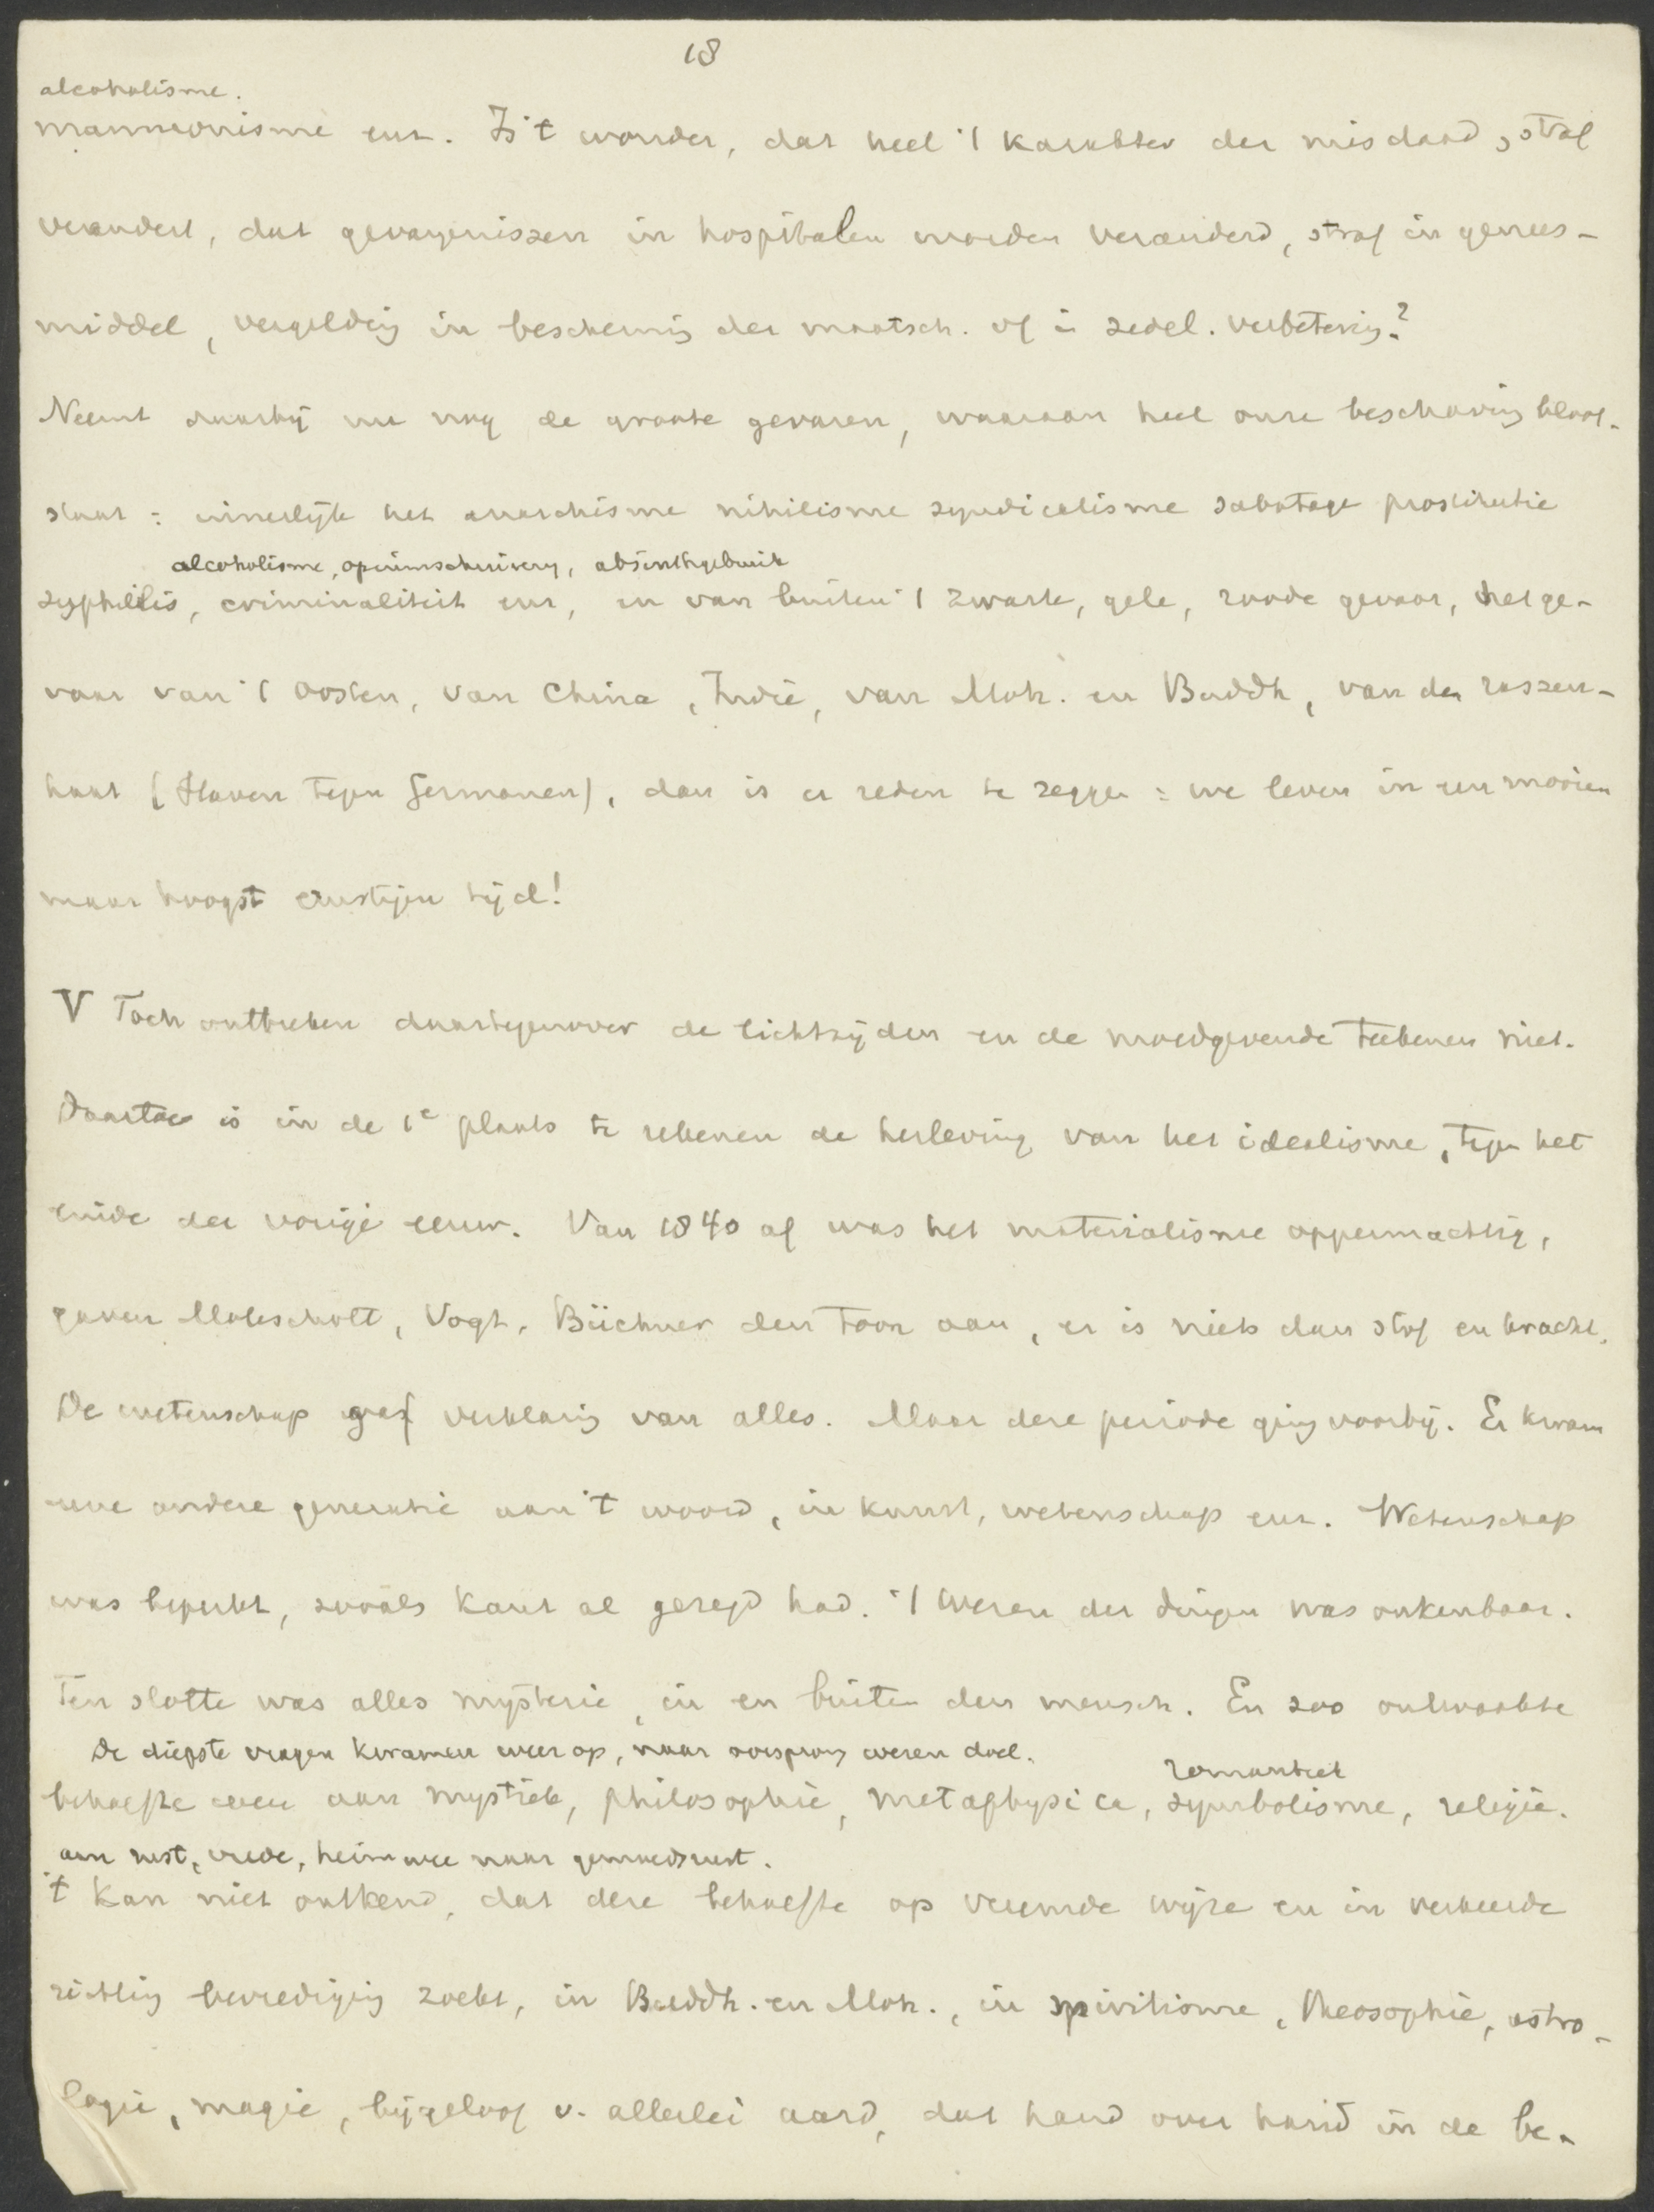 18
alcoholisme.
mammonisme enz. Is 't wonder, dat heel 't karakter der misdaad, straf
verandert, dat gevangenissen in hospitalen worden veranderd, straf in genees-
middel, vergelding in bescherming der maatsch. of in zedel. verbetering?
Neemt daarbij nu nog de groote gevaren, waaraan heel onze beschaving bloot-
staat: innerlijk het anarchisme nihilisme syndicalisme sabotage prostitutie
alcoholisme, opiumschuivery, absinthgebruik
syphilis, criminaliteit enz, en van buiten 't zwarte, gele, roode gevaar, het ge-
vaar van 't Oosten, van China, Indië, van Moh. en Buddh, van den rassen-
haat (Slaven tegen Germanen), dan is er reden te zeggen: we leven in een mooien
maar hoogst ernstigen tijd!
V Toch ontbreken daartegenover de lichtzijden en de moedgevende teekenen niet.
Daartoe is in de 1e plaats te rekenen de herleving van het idealisme, tegen het
einde der vorige eeuw. Van 1840 af was het materialisme oppermachtig,
gaven Moleschott, Vogt, Büchner den toon aan, er is niets dan stof en kracht.
De wetenschap gaf verklaring van alles. Maar deze periode ging voorbij. Er kwam
eene andere generatie aan 't woord, in kunst, wetenschap enz. Wetenschap
was beperkt, zooals Kant al gezegd had. 't Wezen der dingen was onkenbaar.
Ten slotte was alles mysterie, in en buiten den mensch. En zoo ontwaakte
De diepste vragen kwamen weer op, naar oorsprong wezen doel.
romantiek
behoefte weer aan mystiek, philosophie, metaphysica, symbolisme, religie.
aan rust, vrede, heimwee naar gemoedsrust.
't Kan niet ontkend, dat deze behoefte op vreemde wijze en in verkeerde
richting bevrediging zoekt, in Buddh. en Moh., in spiritisme, theosophie, astro-
logie, magie, bijgeloof v. allerlei aard, dat hand over hand in de be-